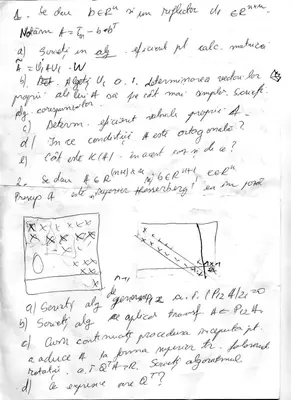 1. Se dau b∈Rⁿ și un reflector U₁ ∈R^(n×n).
Notăm A = Iₙ - b*bᵀ
a) Scrieți un alg. eficient pt calc. matricii
Ã = U₁ * U₁ · W
b) Alegeți U₁ a. î. determinarea vectorilor
proprii ale lui A să fie cât mai simplu. Scrieți
alg. corespunzător
c) Determ. eficient valorile proprii A.
d) În ce condiții A este ortogonală?
e) Cât este K(A) în acest caz și de ce?
2. Se dau A ∈ R^((n+1)×n), b∈R^(n+1), c∈Rⁿ
Presup A este "superior Hessenberg"
a) Scrieți alg de a. î. (P₁₂A)₂₁=0
b) Scrieți alg aplică transf A ← P₁₂A
c) Cum continuați procedura începută pt.
a aduce A la forma superior tr. folosind
rotații. a. î. QᵀA=R. Scrieți algoritmul
d) Ce expresie are Qᵀ?